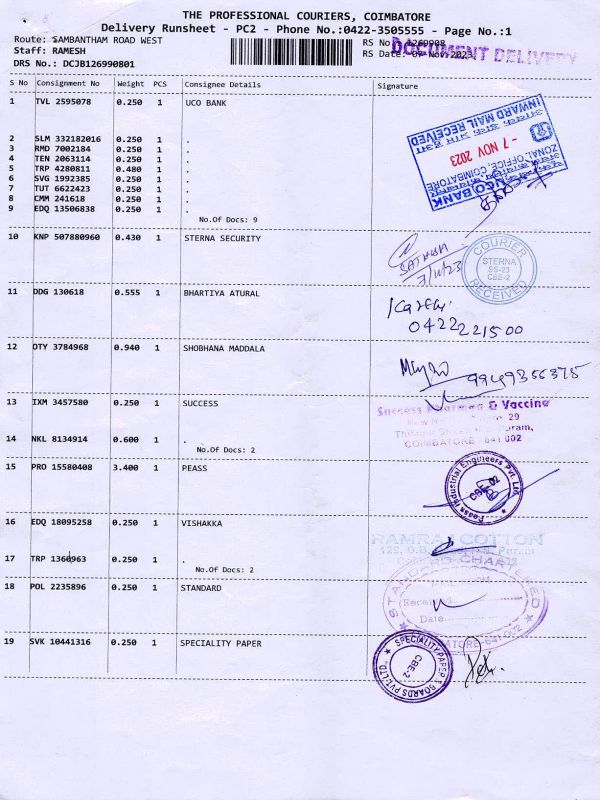 THE PROFESSIONAL COURIERS, COIMBATORE
Delivery Runsheet - PC2 - Phone No.:0422-3505555 - Page No.:1
Route: SAMBANTHAM ROAD WEST
RS No.: 1269908
DOCUMENT DELIVERY
Staff: RAMESH
RS Date: 07-Nov-2023
DRS No.: DCJB126990801
S No Consignment No Weight PCS Consignee Details Signature
1 TVL 2595078 0.250 1 UCO BANK
2 SLM 332182016 0.250 1 .
3 RMD 7002184 0.250 1 .
4 TEN 2063114 0.250 1 .
5 TRP 4280811 0.480 1 .
6 SVG 1992385 0.250 1 .
7 TUT 6622423 0.250 1 .
8 CMM 241618 0.250 1 .
9 EDQ 13506838 0.250 1 .
No.Of Docs: 9
UCO BANK
ZONAL OFFICE, COIMBATORE
- 7 NOV 2023
INWARD MAIL RECEIVED
10 KNP 507880960 0.430 1 STERNA SECURITY
SATHYA
7/11/23
COURIER
STERNA
SS-23
CBE-2
RECEIVED
11 DDG 130618 0.555 1 BHARTIYA ATURAL
0422221500
12 OTY 3784968 0.940 1 SHOBHANA MADDALA
9949356375
13 IXM 3457580 0.250 1 SUCCESS
Success Pharma & Vaccine
COIMBATORE - 641 002
14 NKL 8134914 0.600 1 .
No.Of Docs: 2
15 PRO 15580408 3.400 1 PEASS
Peass Industrial Engineers Pvt. Ltd.
CBE-02
16 EDQ 18095258 0.250 1 VISHAKKA
RAMRAJ COTTON
17 TRP 1360963 0.250 1 .
No.Of Docs: 2
18 POL 2235896 0.250 1 STANDARD
STANDARD CHARTERED
Received
Date
19 SVK 10441316 0.250 1 SPECIALITY PAPER
SPECIALITY PAPER & BOARDS PVT. LTD.
CBE-2